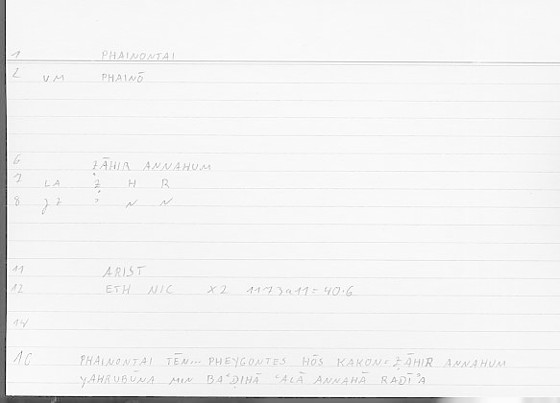 1 PHAINONTAI
2 V.M PHAINŌ
6 ẒĀHIR ANNAHUM
7 LA Ẓ H R
8
11 ARIST
12 ETH NIC X2 1173a11 = 40.6
14
16 PHAINONTAI TĒN... PHEYGONTES HŌS KAKON = ẒĀHIR ANNAHUM
YAHRUBŪNA MIN BAʿḌIHĀ ʿALĀ ANNAHĀ RADĪʾA